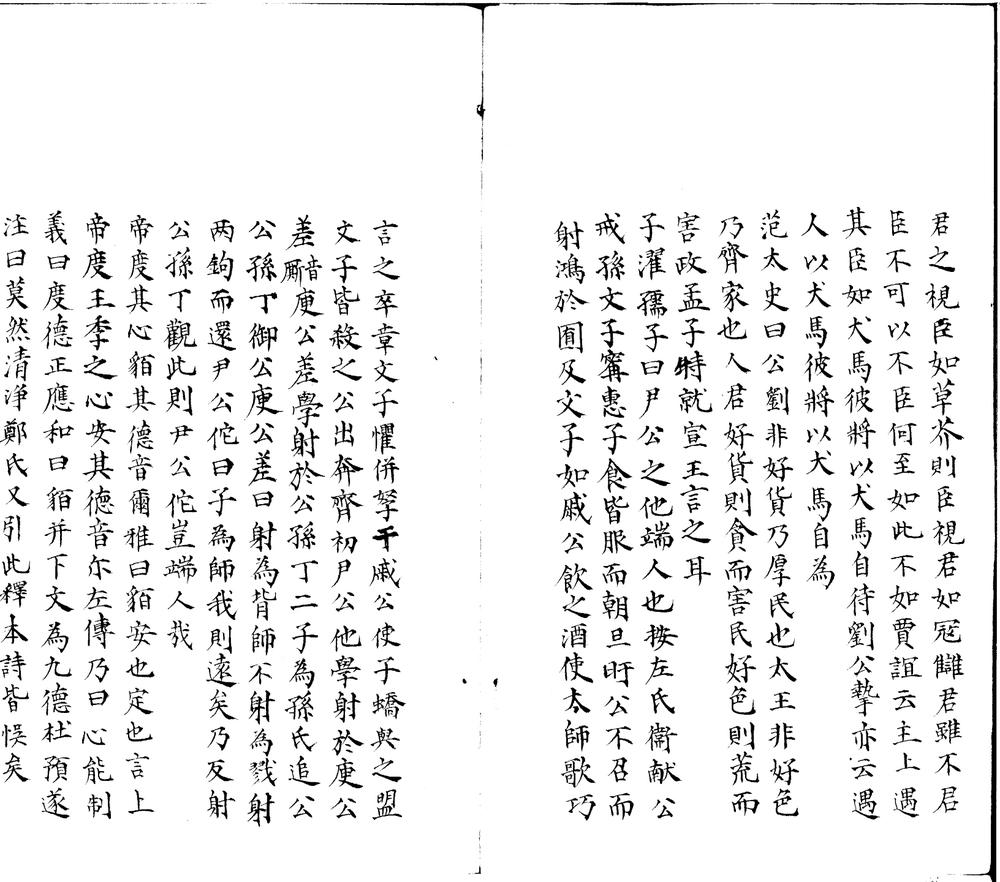 君之視臣如草芥則臣視君如寇讎君雖不君
臣不可以不臣何至如此不如賈誼云主上遇
其臣如犬馬彼將以犬馬自待劉公摯亦云遇
人以犬馬彼將以犬馬自為
范太史曰公劉非好貨乃厚民也太王非好色
乃齊家也人君好貨則貪而害民好色則荒而
害政孟子特就宣王言之耳
子濯孺子曰尹公之他端人也按左氏衞献公
戒孫文子甯惠子食皆服而朝旦旰公不召而
射鴻於囿及文子如戚公飲之酒使太師歌巧
言之卒章文子懼併孥于戚公使子蟜與之盟
文子皆殺之公出奔齊初尹公他學射於庾公
差音廝庾公差學射於公孫丁二子為孫氏追公
公孫丁御公庾公差曰射為背師不射為戮射
两鉤而還尹公佗曰子為師我則遠矣乃反射
公孫丁觀此則尹公佗豈端人㢤
帝度其心貊其德音爾雅曰貊安也定也言上
帝度王季之心安其德音尔左傳乃曰心能制
義曰度德正應和曰貊并下文為九德杜預遂
注曰莫然清淨鄭氏又引此釋本詩皆悞矣